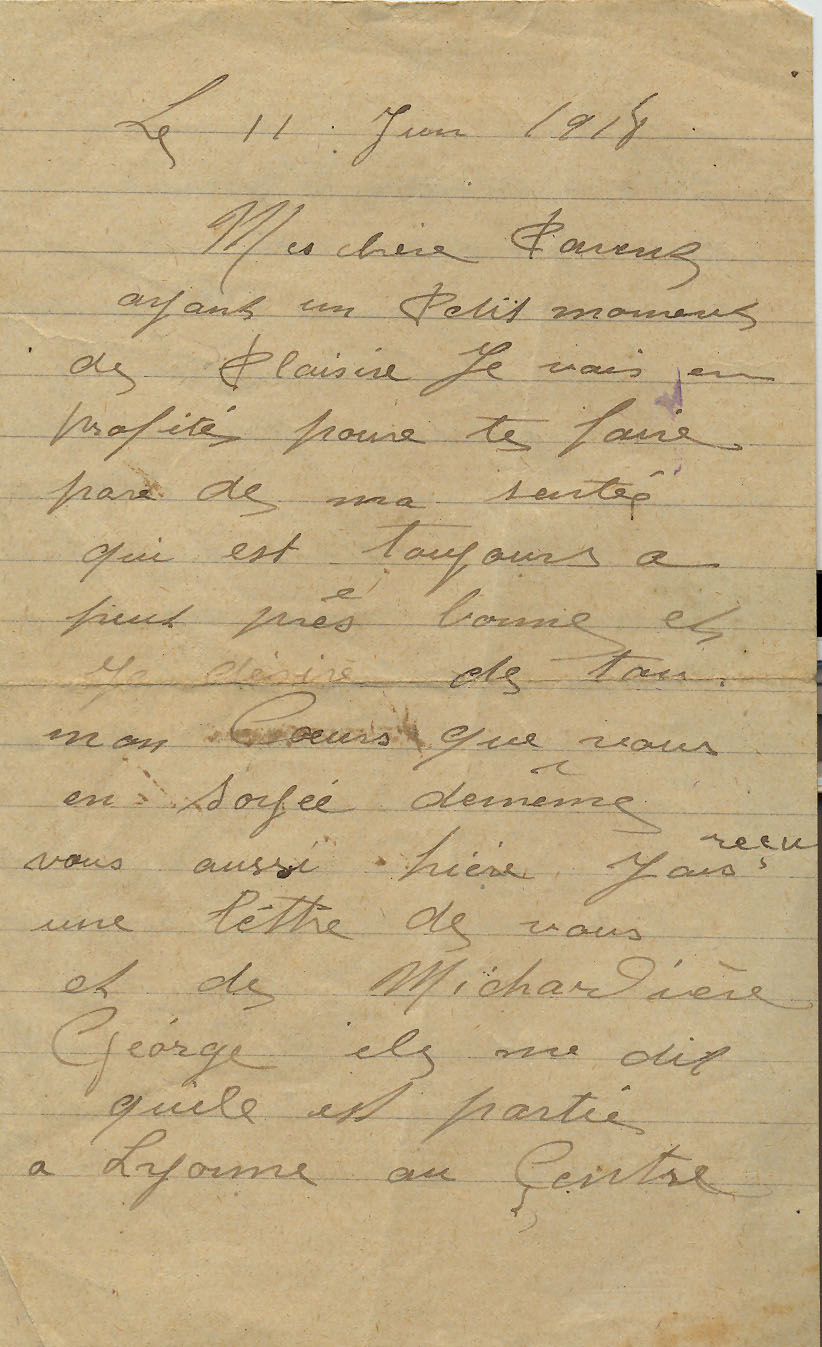 Le 11 Juin 1918
Mes chère Parents
ayant un Petit moment
de Plaisire Je vais en
profités poure te faire
pare de ma sentée
qui est toujours a
peut près bonne et
Je désire de tou
mon Coeurs que vous
en soyée demême
vous aussi hière J'ais reçu
une lêttre de vous
et de Michardière
Géorge ile me dit
quile est partie
a Lyonne au Çentre